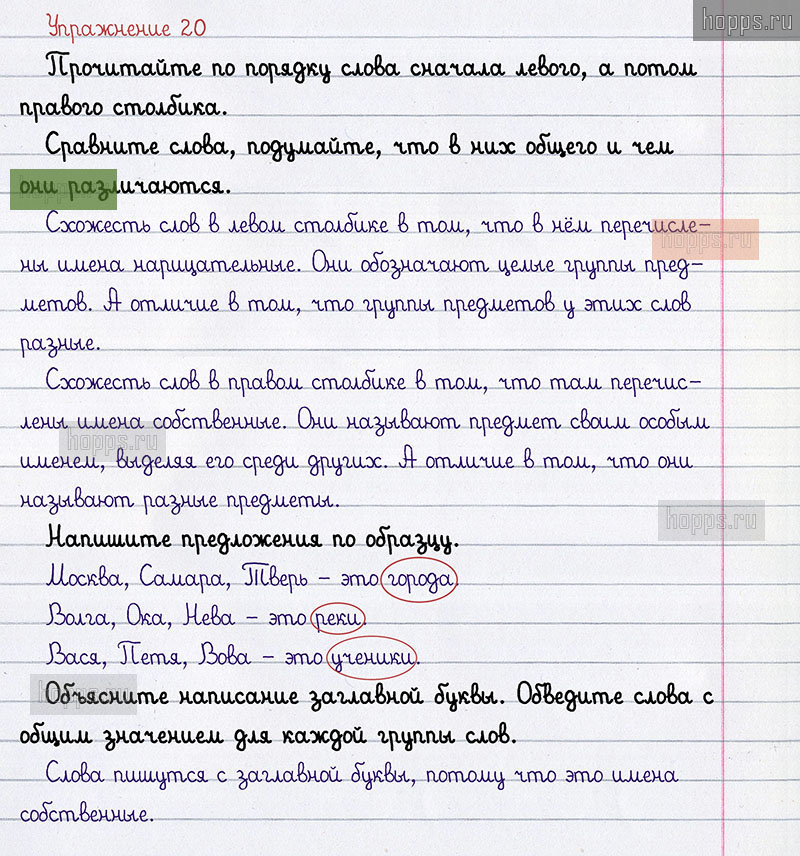 hopps.ru
Упражнение 20
Прочитайте по порядку слова сначала левого, а потом
правого столбика.
Сравните слова, подумайте, что в них общего и чем
они различаются.
Схожесть слов в левом столбике в том, что в нём перечисле-
hopps.ru
ны имена нарицательные. Они обозначают целые группы пред-
метов. А отличие в том, что группы предметов у этих слов
разные.
Схожесть слов в правом столбике в том, что там перечис-
лены имена собственные. Они называют предмет своим особым
hopps.ru
именем, выделяя его среди других. А отличие в том, что они
называют разные предметы.
hopps.ru
Напишите предложения по образцу.
Москва, Самара, Тверь – это города.
Волга, Ока, Нева – это реки.
Вася, Петя, Вова – это ученики.
hopps.ru
Объясните написание заглавной буквы. Обведите слова с
общим значением для каждой группы слов.
Слова пишутся с заглавной буквы, потому что это имена
собственные.